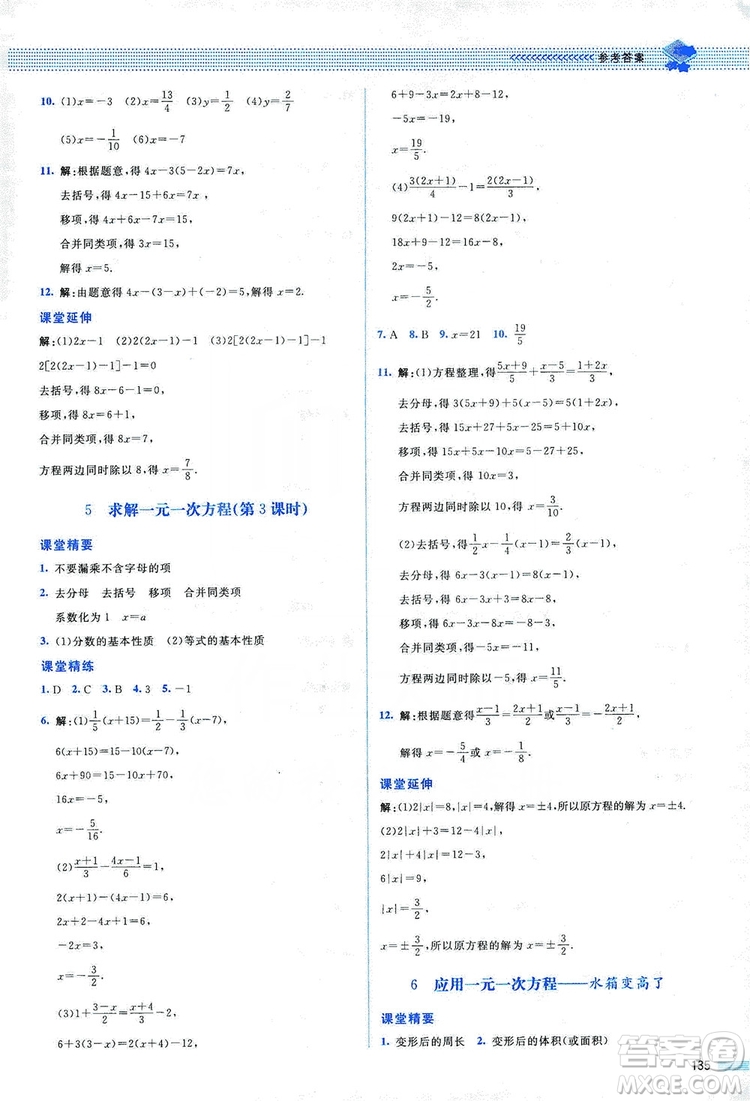 参考答案
10. (1)x=-3 (2)x=13/4 (3)y=1/2 (4)y=2/7
(5)x=-1/10 (6)x=0
11. 解:根据题意,得 4x-3(5-2x)=7x,
去括号,得 4x-15+6x=7x,
移项,得 4x+6x-7x=15,
合并同类项,得 3x=15,
解得 x=5.
12. 解:由题意得 4x-(3-x)+(-2)=5,解得 x=2.
课堂延伸
解:(1)2x-1 (2)2(2x-1)-1 (3)2[2(2x-1)-1]-1
2[2(2x-1)-1]-1=0
去括号,得 8x-6-1=0,
移项,得 8x=6+1,
合并同类项,得 8x=7,
方程两边同时除以 8,得 x=7/8.
5 求解一元一次方程(第 3 课时)
课堂精要
1. 不要漏乘不含字母的项
2. 去分母 去括号 移项 合并同类项
系数化为 1 x=a
3. (1)分数的基本性质 (2)等式的基本性质
课堂精练
1. D 2. C 3. B 4. 3 5. -1
6. 解:(1)1/5(x+15)=1/2-1/3(x-7),
6(x+15)=15-10(x-7),
6x+90=15-10x+70,
16x=-5,
x=-5/16.
(2)(x+1)/3-(4x-1)/6=1,
2(x+1)-(4x-1)=6,
2x+2-4x+1=6,
-2x=3,
x=-3/2.
(3)1+(3-x)/2=(x+4)/3-2,
6+3(3-x)=2(x+4)-12,
6+9-3x=2x+8-12,
-5x=-19,
x=19/5.
(4)3(2x+1)/4-1=2(2x-1)/3,
9(2x+1)-12=8(2x-1),
18x+9-12=16x-8,
2x=-5,
x=-5/2.
7. A 8. B 9. x=21 10. 19/5
11. 解:(1)方程整理,得(5x+9)/5+(x-5)/3=(5+10x)/3,
去分母,得 3(5x+9)+5(x-5)=5(5+10x),
去括号,得 15x+27+5x-25=25+50x,
移项,得 15x+5x-50x=25-27+25,
合并同类项,得 -30x=23,
方程两边同时除以 10,得 x=-23/30.
(2)去括号,得 1/2x-1/4(x-1)=2/3(x-1),
去分母,得 6x-3(x-1)=8(x-1),
去括号,得 6x-3x+3=8x-8,
移项,得 6x-3x-8x=-8-3,
合并同类项,得 -5x=-11,
方程两边同时除以 -5,得 x=11/5.
12. 解:根据题意得(x-1)/3=(2x+1)/2 或(x-1)/2=(2x+1)/3,
解得 x=-5/4 或 x=-5.
课堂延伸
解:(1)2|x|=8,|x|=4,解得 x=±4,所以原方程的解为 x=±4.
(2)2(|x|+3)=12-4|x|,
2|x|+4|x|=12-3,
6|x|=9,
|x|=3/2,
x=±3/2,所以原方程的解为 x=±3/2.
6 应用一元一次方程——水箱变高了
课堂精要
1. 变形后的周长 2. 变形后的体积(或面积)
135
答案圈
MXQE.COM